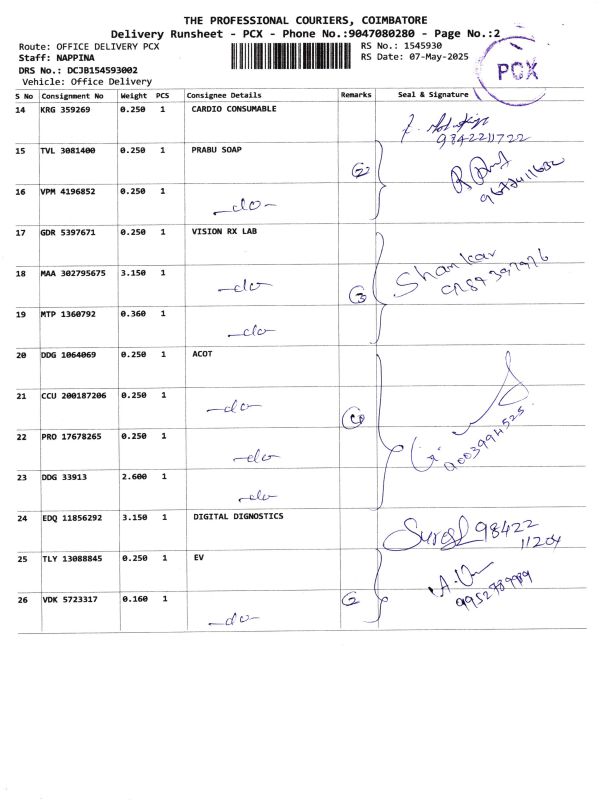 THE PROFESSIONAL COURIERS, COIMBATORE
Delivery Runsheet - PCX - Phone No.:9047080280 - Page No.:2
Route: OFFICE DELIVERY PCX RS No.: 1545930
Staff: NAPPINA RS Date: 07-May-2025
DRS No.: DCJB154593002
Vehicle: Office Delivery
PCX
S No Consignment No Weight PCS Consignee Details Remarks Seal & Signature
14 KRG 359269 0.250 1 CARDIO CONSUMABLE
9842211722
15 TVL 3081400 0.250 1 PRABU SOAP
2
16 VPM 4196852 0.250 1 -do-
17 GDR 5397671 0.250 1 VISION RX LAB
Shankar
18 MAA 302795675 3.150 1 -do- 3
19 MTP 1360792 0.360 1 -do-
20 DDG 1064069 0.250 1 ACOT
21 CCU 200187206 0.250 1 -do-
9003994525
22 PRO 17678265 0.250 1 -do-
23 DDG 33913 2.600 1 -do-
24 EDQ 11856292 3.150 1 DIGITAL DIGNOSTICS
98422
11204
25 TLY 13088845 0.250 1 EV
26 VDK 5723317 0.160 1 -do- 2